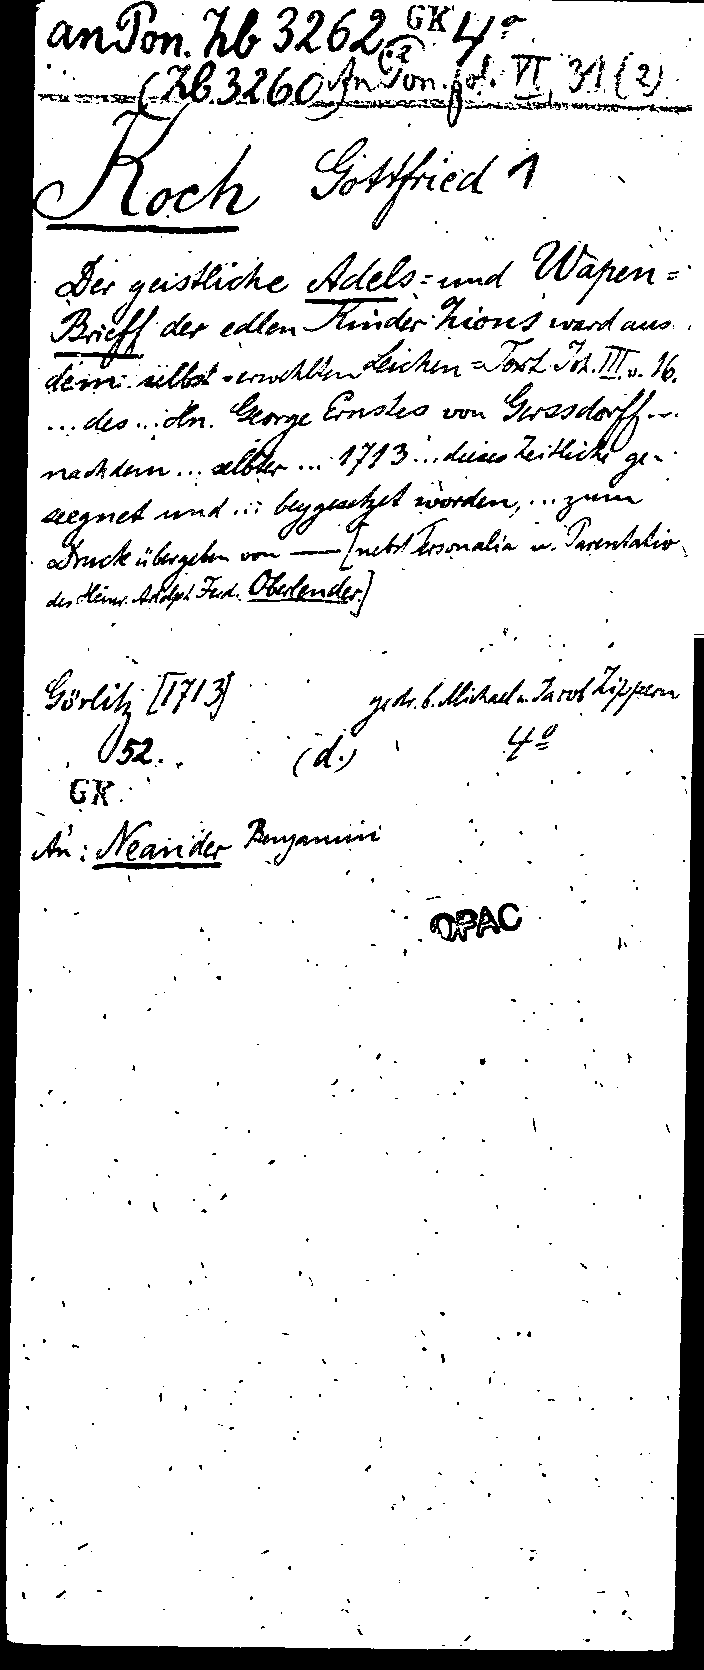 an Pon. Zb 3262 GK 4º
(Zb 3260) An Pon. fol. VI, 31 (2)
Koch Gottfried 1
Der geistliche Adels= und Wapen=
Brieff der edlen Kinder Zions ward aus
dem selbst-erwehlten Leichen=Text Joh. III v. 16.
... des ... Hn. George Ernstes von Gerssdorff ...
nachdem ... selbter ... 1713 ... dieses Zeitliche ge-
segnet und ... beygesetzet worden, ... zum
Druck übergeben von — [nebst Personalia u. Parentatio
des Heinr. Adolph Ferd. Oberlender.]
Görlitz [1713] gedr. b. Michael u. Jacob Zippern
52. (d.) 4º
GK
An: Neander Benjamin
OPAC